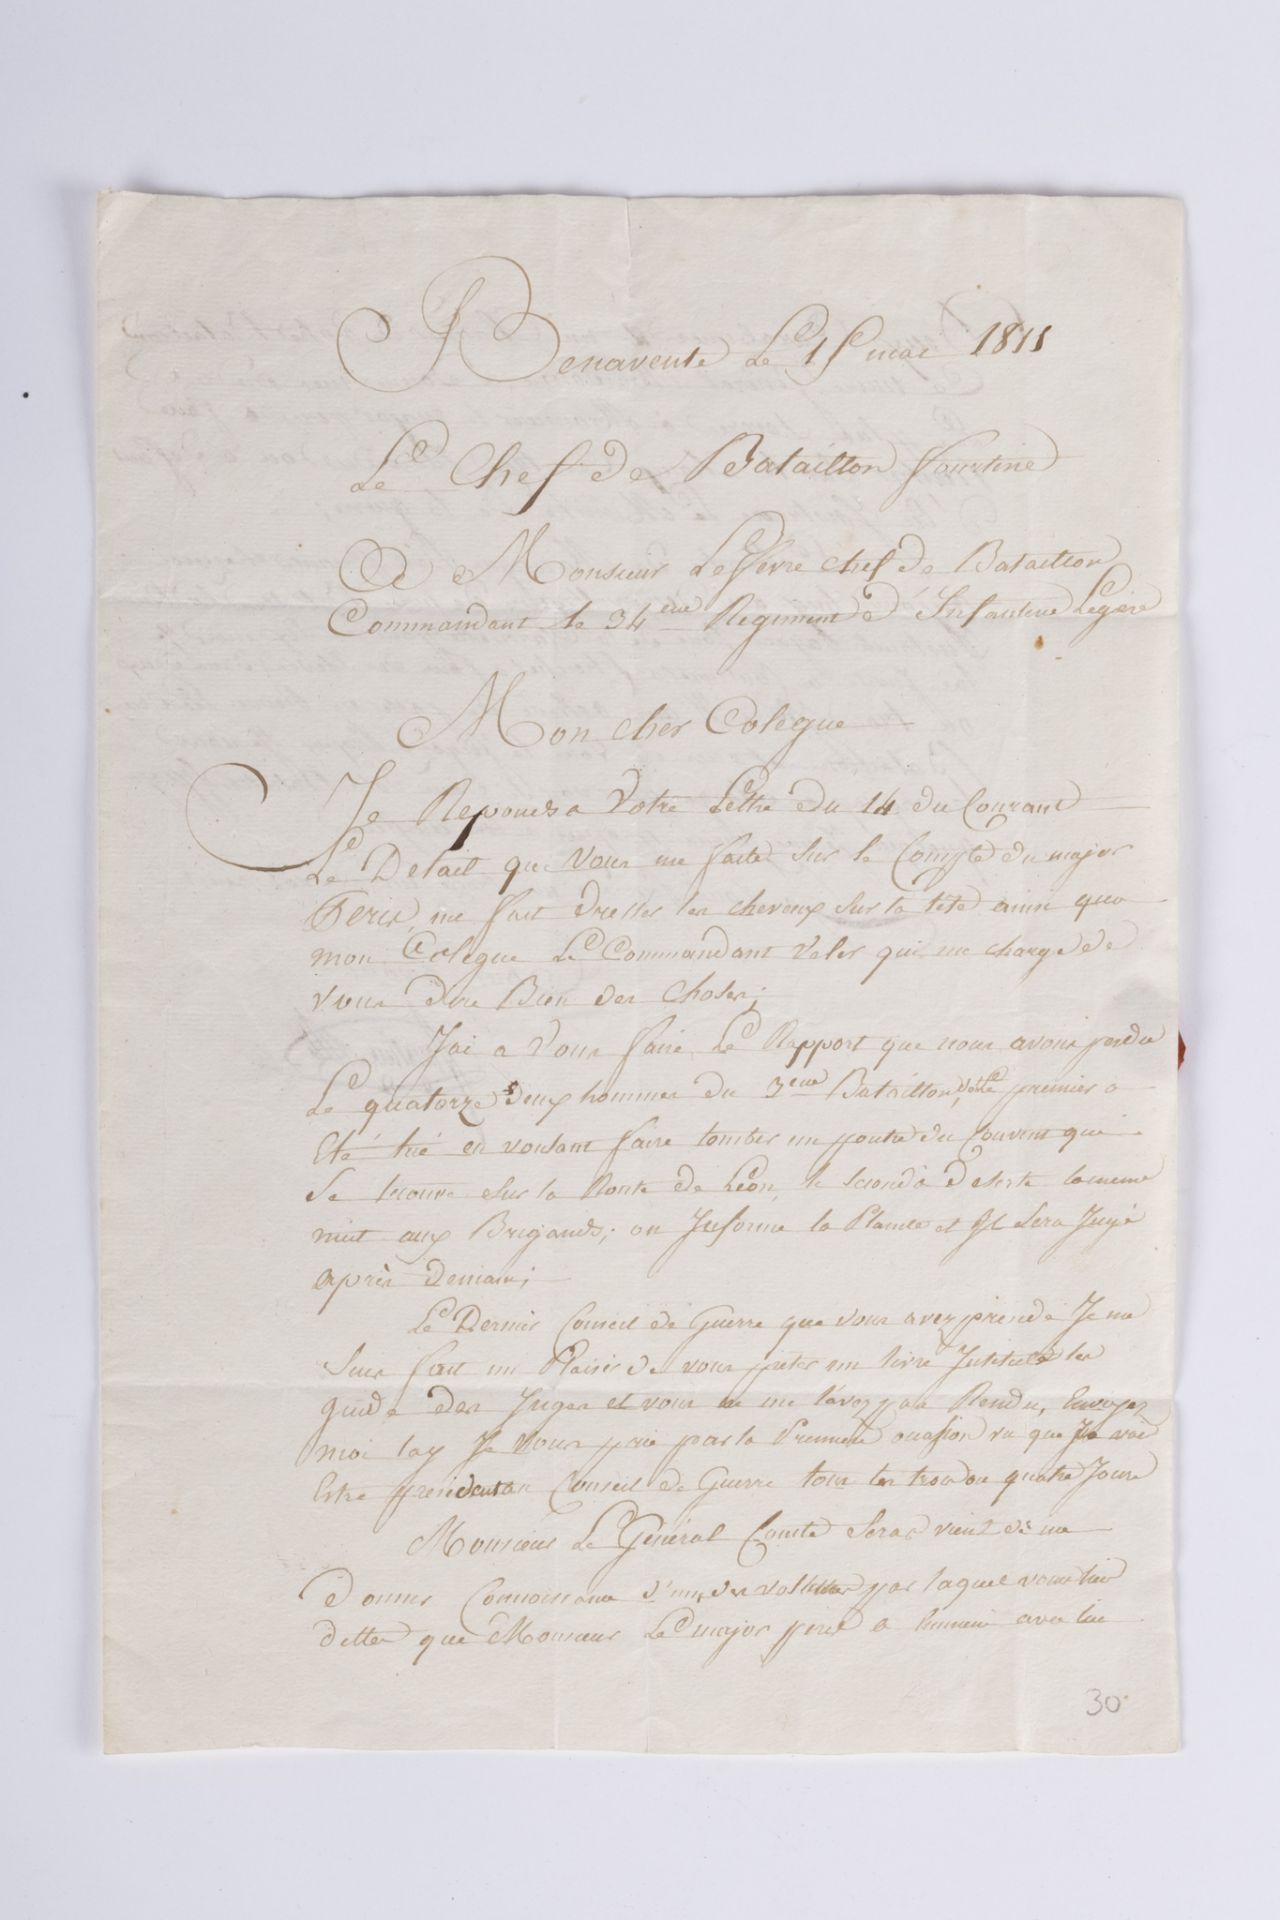 Benavente Le 15 mai 1811
Le Chef de Bataillon fourtine
A Monsieur Lefevre chef de Bataillon
Commandant le 34eme Regiment d'Infanterie Legere
Mon cher Colegue
Je Repond a Votre Lettre du 14 du Courant
Le Detail que Vous me faite sur le Compte du major
me fait dresser les cheveux sur la tete ainsi que
mon Colegue Le Commandant qui me charge de
vous dire Bien des choses;
Jai a Vous faire Le Rapport que nous avons perdu
Le quatorze deux hommes du 3eme Bataillon, premier a
Eté tué en voulant faire tomber un poutre du Couvent qui
se trouve sur la Route de Léon, le second à deserté la meme
nuit aux Brigands; on Informe la Plainte et Il sera Jugé
après demain;
Le Dernier Conseil de Guerre que vous avez presidé Je me
suis fait un Plaisir de vous preter un livre Intitulé les
guide des Juges et vous ne me l'avez pas Rendu, Envoyez
moi lay Je Vous prie par la Premiere ocassion vu que Je vai
Estre president au Conseil de Guerre tous les trois ou quatre Jours
Monsieur Le Général Comte Seras vient de me
donner Connoissance par laquel vous lui
dittes que Monsieur Le major a avec lui
30